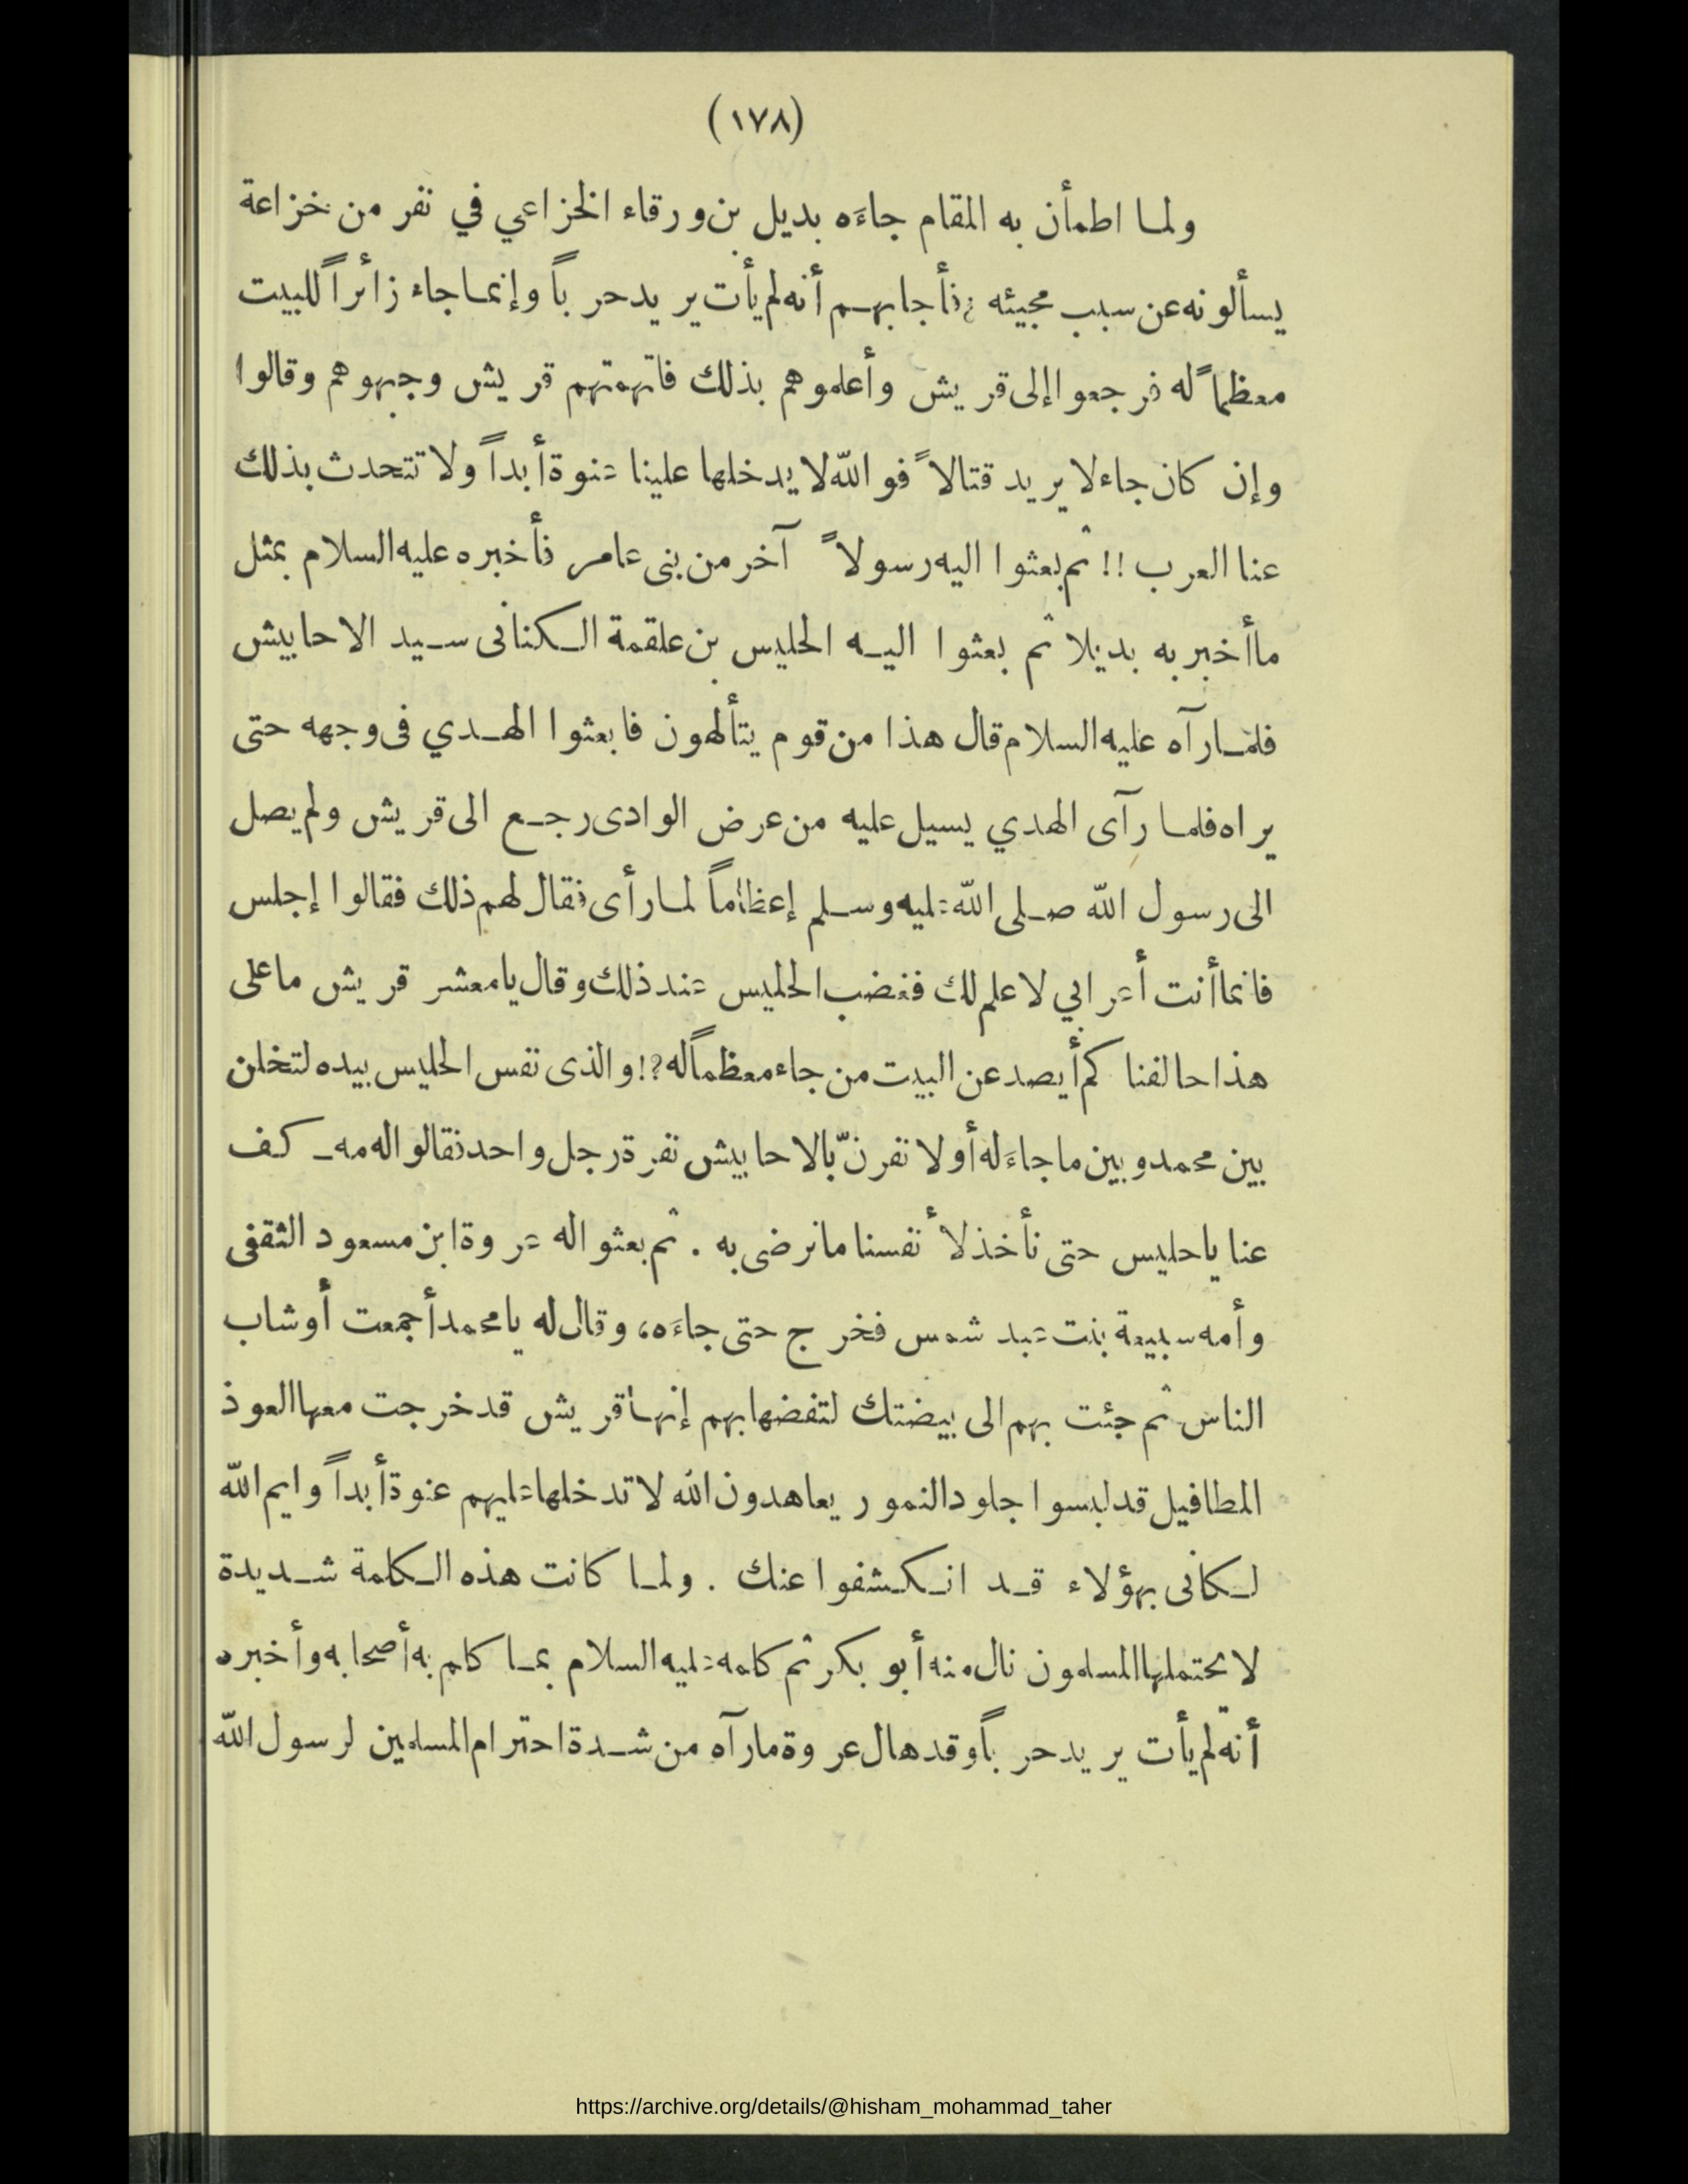 (١٧٨)
ولما اطمأن به المقام جاءَه بديل بن ورقاء الخزاعي في نفر من خزاعة
يسألونه عن سبب مجيئه فأجابهم أنه لم يأت يريد حرباً وإنما جاء زائراً للبيت
معظماً له فرجعوا إلى قريش وأعلموهم بذلك فاتهمتهم قريش وجبهوهم وقالوا
وإن كان جاء لا يريد قتالاً فوالله لا يدخلها علينا عنوة أبداً ولا تتحدث بذلك
عنا العرب !! ثم بعثوا اليه رسولاً آخر من بنى عامر فأخبره عليه السلام بمثل
ما أخبر به بديلا ثم بعثوا اليه الحليس بن علقمة الكنانى سيد الاحابيش
فلما رآه عليه السلام قال هذا من قوم يتألهون فابعثوا الهدي فى وجهه حتى
يراه فلما رآى الهدي يسيل عليه من عرض الوادى رجع الى قريش ولم يصل
الى رسول الله صلى الله عليه وسلم إعظاماً لما رأى فقال لهم ذلك فقالوا إجلس
فانما أنت أعرابي لا علم لك فغضب الحليس عند ذلك وقال يا معشر قريش ما على
هذا حالفناكم أيصد عن البيت من جاء معظماً له ?! والذى نفس الحليس بيده لتخلن
بين محمد وبين ما جاءَ له أو لا نفرنّ بالاحابيش نفرة رجل واحد فقالوا له مه ـ كف
عنا يا حليس حتى نأخذ لأنفسنا ما نرضى به . ثم بعثوا له عروة ابن مسعود الثقفى
وأمه سبيعة بنت عبد شمس فخرج حتى جاءَه، وقال له يا محمد أجمعت أوشاب
الناس ثم جئت بهم الى بيضتك لتفضها بهم إنها قريش قد خرجت معها العوذ
المطافيل قد لبسوا جلود النمور يعاهدون الله لا تدخلها عليهم عنوة أبداً وايم الله
لكأنى بهؤلاء قد انكشفوا عنك . ولما كانت هذه الكلمة شديدة
لا يحتملها المسلمون نال منه أبو بكر ثم كلمه عليه السلام بما كلم به أصحابه وأخبره
أنه لم يأت يريد حرباً وقد هال عروة ما رآه من شدة احترام المسلمين لرسول الله
https://archive.org/details/@hisham_mohammad_taher